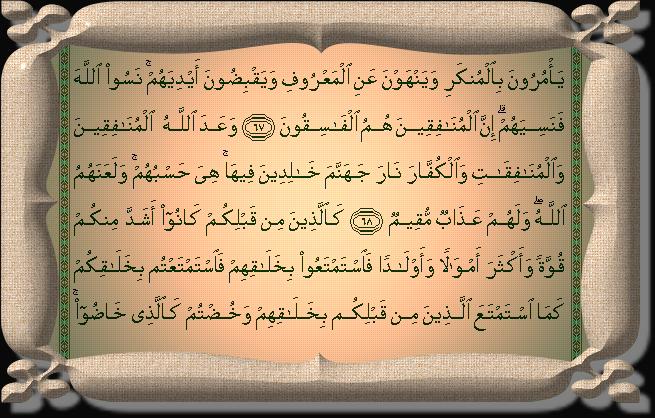 يَأْمُرُونَ بِٱلْمُنكَرِ وَيَنْهَوْنَ عَنِ ٱلْمَعْرُوفِ وَيَقْبِضُونَ أَيْدِيَهُمْ ۚ نَسُوا۟ ٱللَّهَ
فَنَسِيَهُمْ ۗ إِنَّ ٱلْمُنَـٰفِقِينَ هُمُ ٱلْفَـٰسِقُونَ ٦٧ وَعَدَ ٱللَّهُ ٱلْمُنَـٰفِقِينَ
وَٱلْمُنَـٰفِقَـٰتِ وَٱلْكُفَّارَ نَارَ جَهَنَّمَ خَـٰلِدِينَ فِيهَا ۚ هِىَ حَسْبُهُمْ ۚ وَلَعَنَهُمُ
ٱللَّهُ ۖ وَلَهُمْ عَذَابٌ مُّقِيمٌ ٦٨ كَٱلَّذِينَ مِن قَبْلِكُمْ كَانُوٓا۟ أَشَدَّ مِنكُمْ
قُوَّةً وَأَكْثَرَ أَمْوَٰلًا وَأَوْلَـٰدًا فَٱسْتَمْتَعُوا۟ بِخَلَـٰقِهِمْ فَٱسْتَمْتَعْتُم بِخَلَـٰقِكُمْ
كَمَا ٱسْتَمْتَعَ ٱلَّذِينَ مِن قَبْلِكُم بِخَلَـٰقِهِمْ وَخُضْتُمْ كَٱلَّذِى خَاضُوٓا۟ ۚ